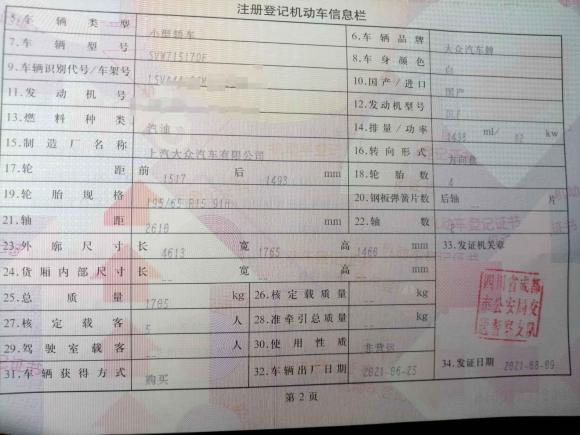 注册登记机动车信息栏
5.车辆类型 小型轿车 6.车辆品牌 大众汽车牌
7.车辆型号 8.车身颜色 白
9.车辆识别代号/车架号 10.国产/进口 国产
11.发动机号 12.发动机型号
13.燃料种类 汽油 14.排量/功率 ml/ kw
15.制造厂名称 上汽大众汽车有限公司 16.转向形式 方向盘
17.轮距 前 1517 后 1493 mm 18.轮胎数 4
19.轮胎规格 195/65 R15 91H 20.钢板弹簧片数 后轴 -- 片
21.轴距 2610 mm 22.轴数
23.外廓尺寸 长 4613 宽 1765 高 1460 mm 33.发证机关章
24.货厢内部尺寸 长 -- 宽 -- 高 -- mm
25.总质量 1705 kg 26.核定载质量 -- kg
27.核定载客 5 人 28.准牵引总质量 -- kg
29.驾驶室载客 -- 人 30.使用性质 非营运
31.车辆获得方式 购买 32.车辆出厂日期 2021-06-25 34.发证日期 2021-08-09
四川省成都
市公安局交
通警察支队
第2页